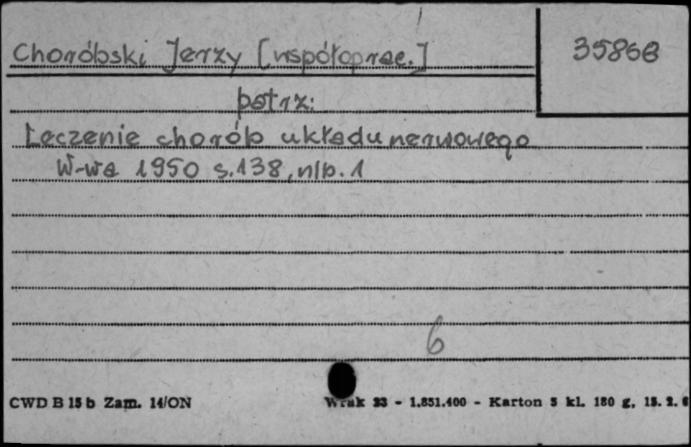 Choróbski Jerzy [współoprac.]
35868
patrz:
Leczenie chorób układu nerwowego
W-wa 1950 s.138, nlb. 1
6
CWD B 15 b Zam. 14/ON
Wrak 23 - 1.851.400 - Karton 5 kl. 180 g,